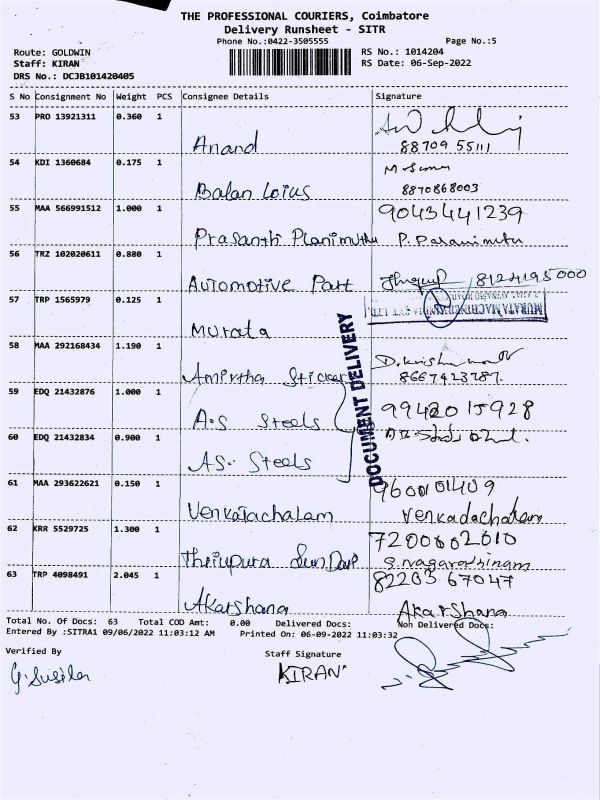 THE PROFESSIONAL COURIERS, Coimbatore
Delivery Runsheet - SITR
Phone No.:0422-3505555 Page No.:5
Route: GOLDWIN RS No.: 1014204
Staff: KIRAN RS Date: 06-Sep-2022
DRS No.: DCJB101420405
S No Consignment No Weight PCS Consignee Details Signature
53 PRO 13921311 0.360 1
Anand 88709 55111
54 KDI 1360684 0.175 1
Balan Loius 8870868003
55 MAA 566991512 1.000 1 9043441239
Prasanth Planimuthu P. Palanimutu
56 TRZ 102020611 0.880 1
Automotive Part 8124195000
57 TRP 1565979 0.125 1
Murata
DOCUMENT DELIVERY
58 MAA 292168434 1.190 1
Amirtha Sticker 8667423787.
59 EDQ 21432876 1.000 1
A.S Steels 9942015928
60 EDQ 21432834 0.900 1
AS. Steels
61 MAA 293622621 0.150 1 9600101409
Venkatachalam Venkadachalam
62 KRR 5529725 1.300 1 7200602010
Thriupura Sun Dar S. nagarathinam
63 TRP 4098491 2.045 1 82203 67047
Akarshana Akarshana
Total No. Of Docs: 63 Total COD Amt: 0.00 Delivered Docs: Non Delivered Docs:
Entered By :SITRA1 09/06/2022 11:03:12 AM Printed On: 06-09-2022 11:03:32
Verified By Staff Signature
G. Susila KIRAN